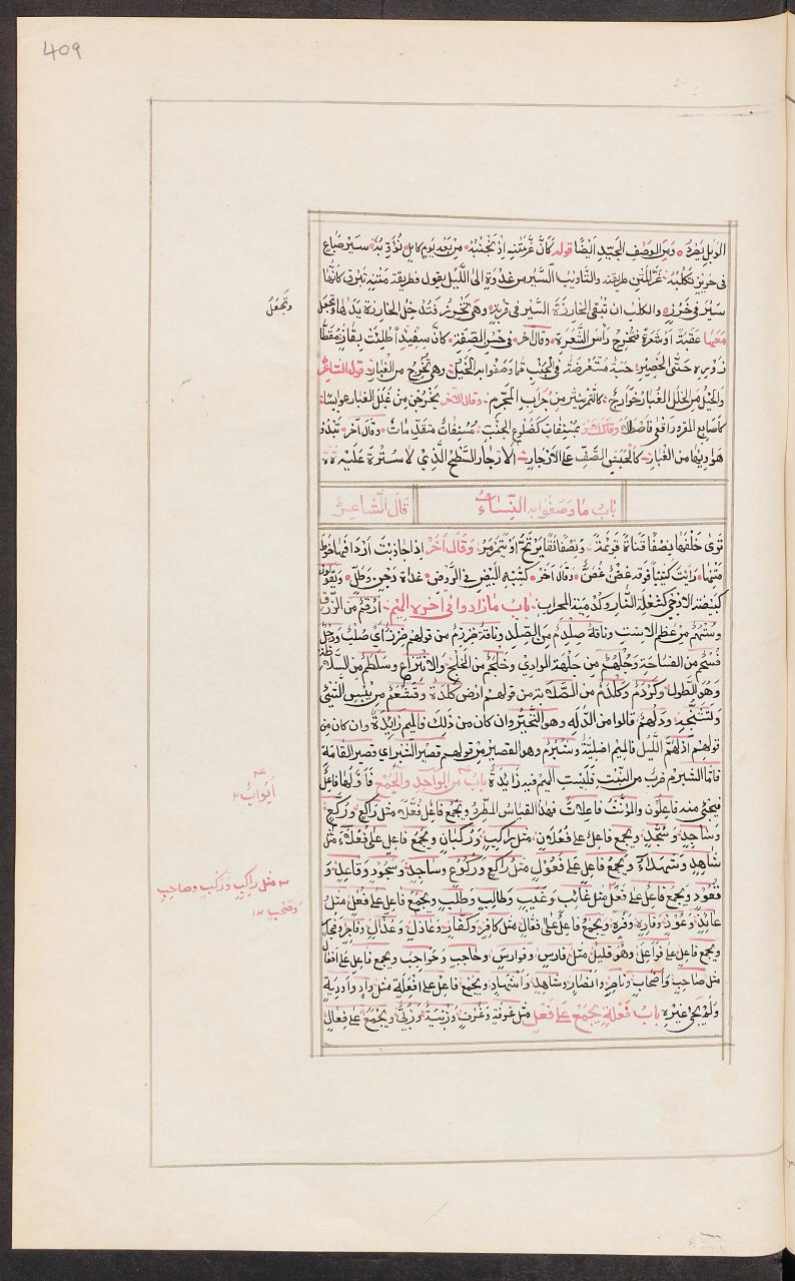 409
الوبل يغرد ومن الوصف الجيد ايضا قوله كأن غر متنه اذ نجنبه من بعد يوم كامل نؤوبه سير صناع
في خريز تكلبه غر المتن طريقته والتاويب السير من غدوة الى الليل يقول فطريقة متنه تبرق كانها
سير في خرز والكلب ان تبقى الخارزة السير في وهي تخرز فتدخل الخارزة يدها وتجعل
وتجعل
معها عقبة او شعرة فتخرج رأس الشعرة وقال آخر في حسن الصفة كأن سفيد
حتى الخصير وصفوا به الخيل وهي تخرج من الغبار قول الشاعر
والخيل من خلل الغبار خوارج كالتمر ينثر من جراب المجرم وقال آخر يخرجن من خلل الغبار عوابسا
كأصابع المقرور وقال آخر كضلوع الجنب وقال آخر تبدو
هواديها من الغبار كالحبش الصف على الاجار الاجار السطح الذي لا سترة عليه
باب ما وصفوا به النساء
قال الشاعر
ترى خلفها نصفا قناة قويمة ونصفا نقا يرتج او يتمرمر وقال آخر اذا جاذبت
متنها رأيت كثيبا فوقه غصن وقال آخر كتبه البيض في الروض غداة دجن وطل ويقولون
كبيضة الادحي كشعلة النار وكدمية المحراب باب ما زادوا في آخره الميم أزرقم من الزرق
وستهم من عظم الاست وناقة صلدم من الصلد وناقة ضرزم من قولهم ضرز أي صلب ورجل
فسحم من الفساحة وجلهم من جلهة الوادي وخلجم من الخلج والانتزاع وسلطم من السلاطة
وهو الطول وكردم وكلدم من الصلابة من قولهم ارض كلدة وقشعم من يبس الشيء
وتشنجه ودلهم قالوا من الدله وهو التحير وان كان من ذلك فالميم زائدة وان كان من
قولهم ادلهم الليل فالميم اصلية وشبرم وهو القصير من قولهم قصير الشبر اي قصير القامة
فاما الشبرم ضرب من النبت فليست الميم فيه زائدة باب من الواحد والجمع فأولها فاعل
ابواب
فيجئ منه فاعلون والمؤنث فاعلات فهذا القياس المطرد ويجمع فاعل فعل مثل راكع وركع
وساجد وسجد ويجمع فاعل على فعلان مثل راكب وركبان ويجمع فاعل على فعلاء مثل
شاهد وشهداء ويجمع فاعل على فعول مثل راكع وركوع وساجد وسجود وقاعد و
مثل راكب وركب وصاحب
وصحب
قعود ويجمع فاعل على فعل مثل غائب وغيب وطالب وطلب ويجمع فاعل على فعل مثل
عائذ وعوذ وفاره وفره ويجمع فاعل على فعال مثل كافر وكفار وعاذل وعذال وفاجر وفجار
ويجمع فاعل على فواعل وهو قليل مثل فارس وفوارس وحاجب وحواجب ويجمع فاعل على افعال
مثل صاحب واصحاب وناصر وانصار وشاهد وأشهاد ويجمع فاعل على افعلة مثل واد واودية
ولم يجئ غيره باب فعلة يجمع على فعل مثل غرفة وغرف وزبية وزبى ويجمع على فعال